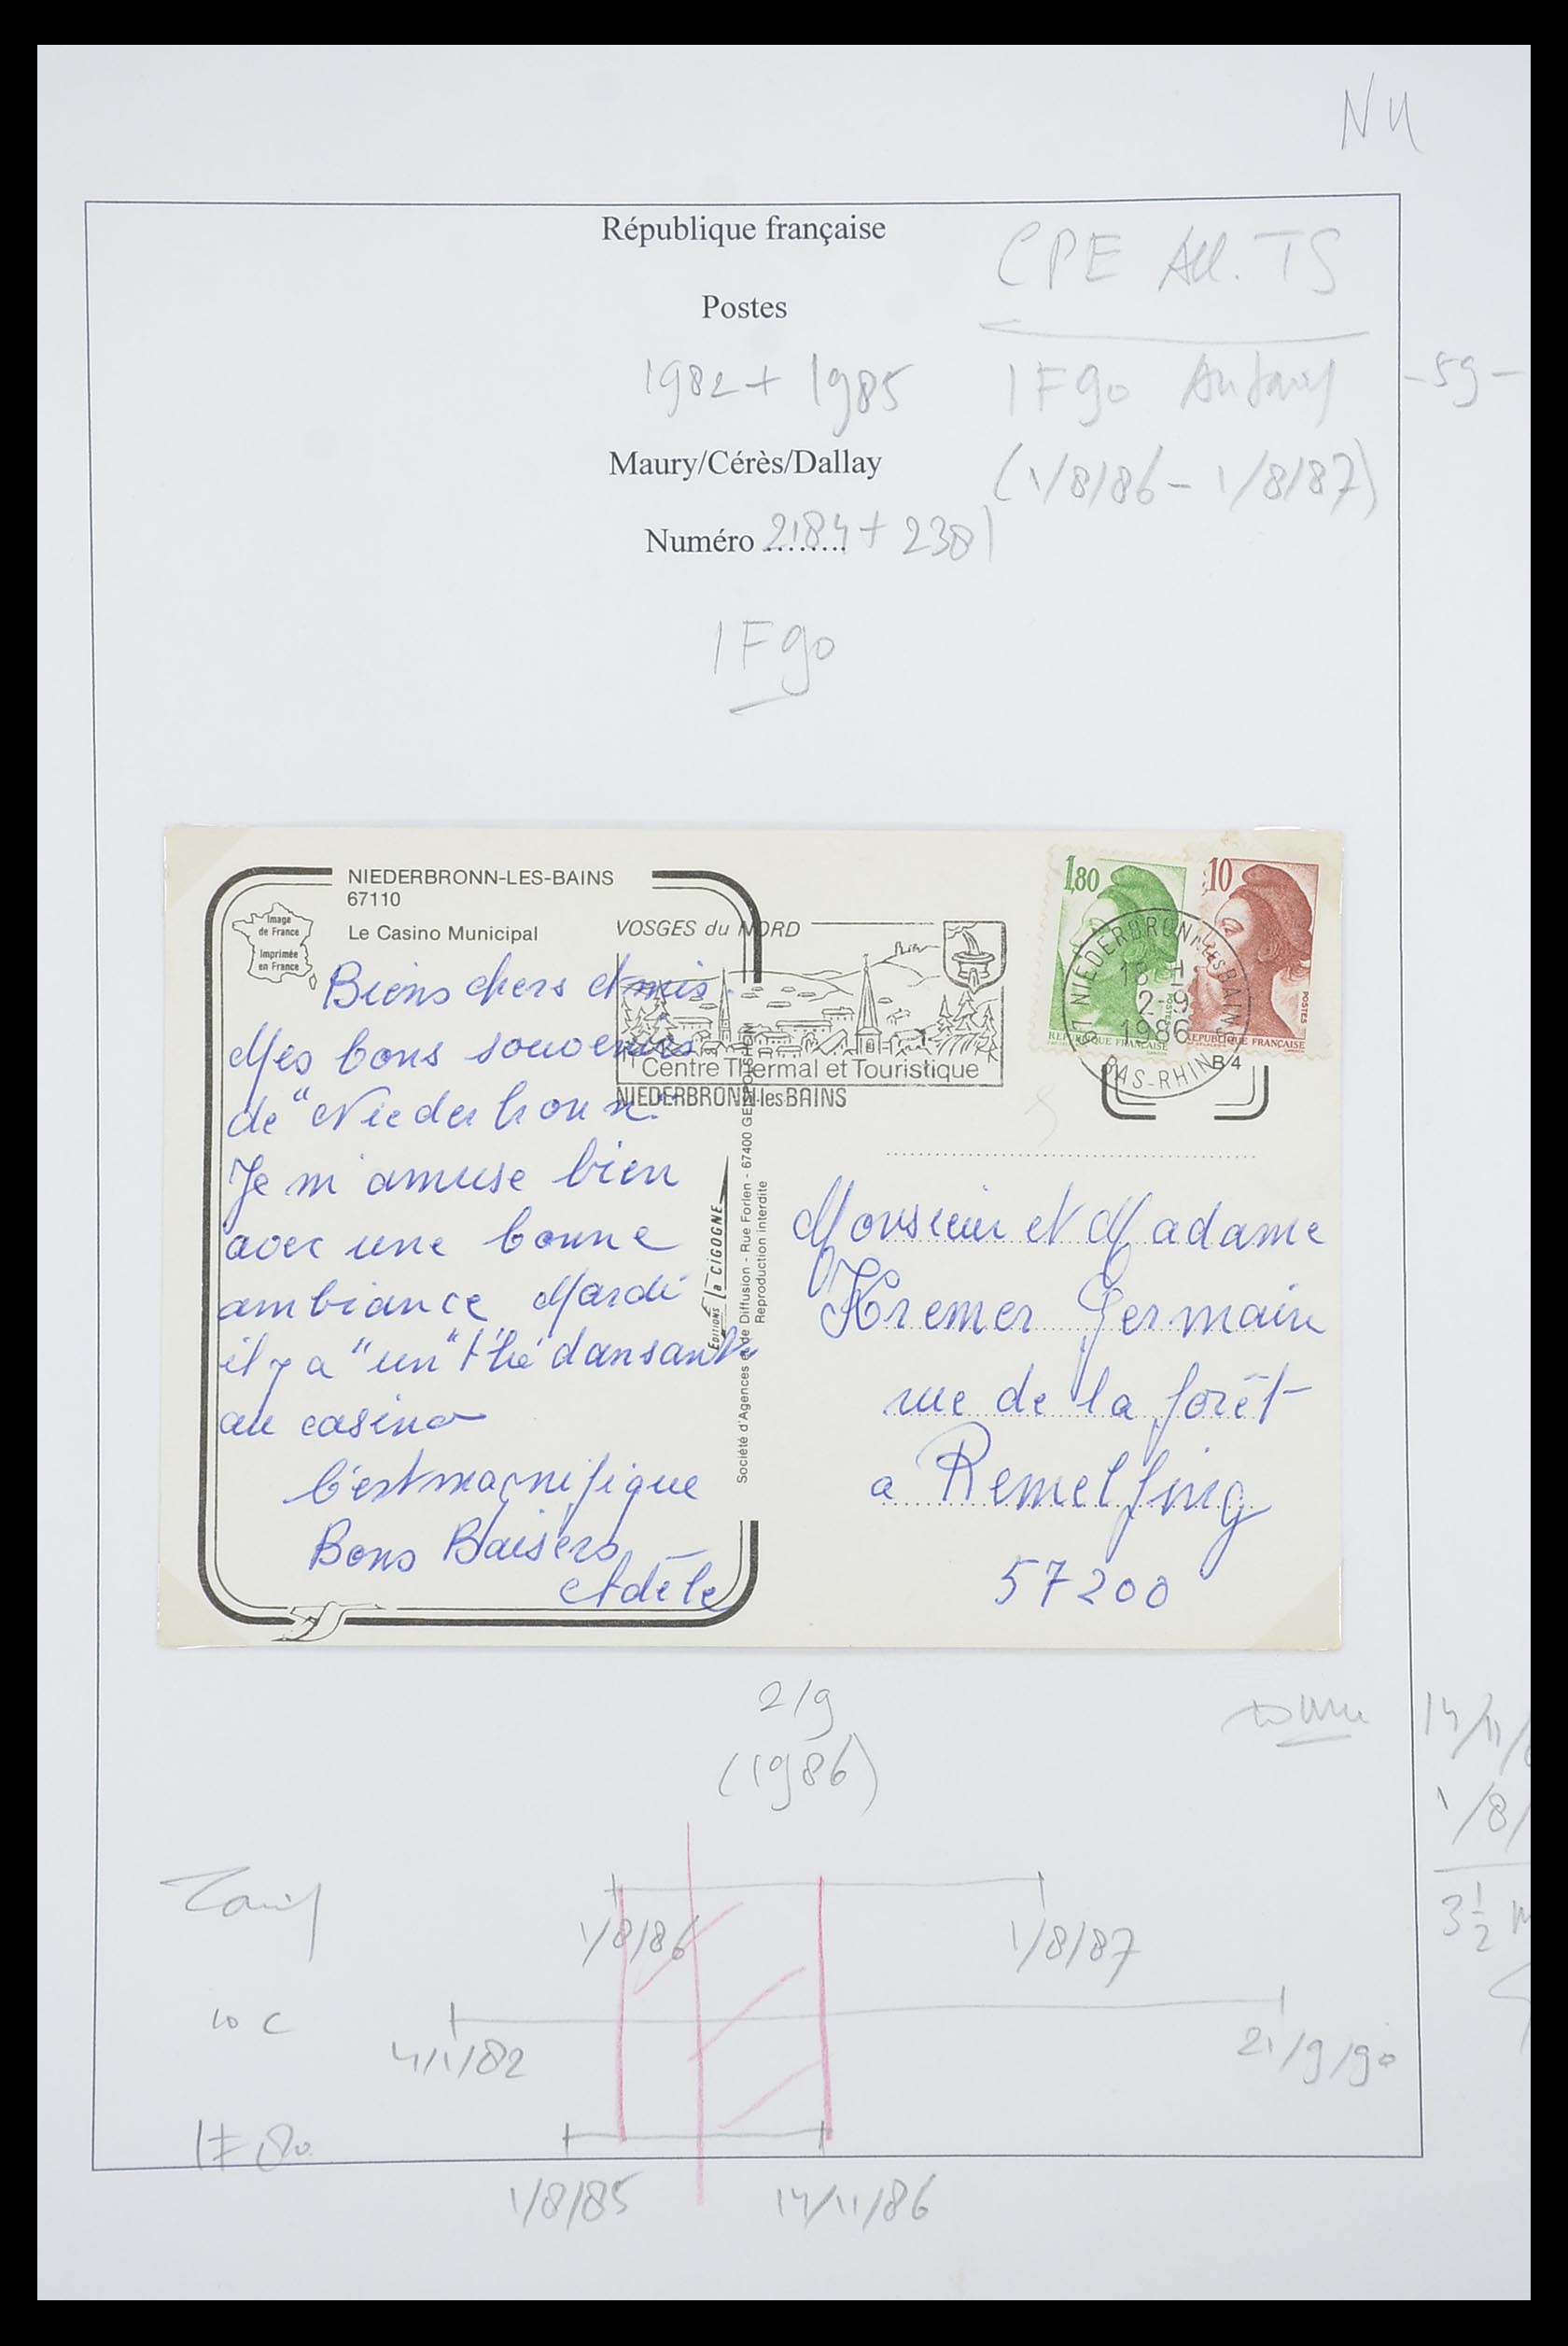 N 4
République française
CPE All. TS
Postes
1982 + 1985
1F90
- 59 -
Maury/Cérès/Dallay
(1/8/86 - 1/8/87)
Numéro ........ 2184 + 2381
1F90
NIEDERBRONN-LES-BAINS
67110
Le Casino Municipal
Image
de France
Imprimée
en France
Biens chers Amis.
Mes bons souvenirs
de "Niederbronn."
Je m'amuse bien
avec une bonne
ambiance Mardi
il y a "un" thé dansant
au casino
C'est magnifique
Bons Baisers
Adèle
VOSGES du NORD
Centre Thermal et Touristique
NIEDERBRONN-les BAINS
1,80
POSTES
REPUBLIQUE FRANÇAISE
10
POSTES
REPUBLIQUE FRANÇAISE
67 NIEDERBRONN-les-BAINS
18 H
2-9
1986
BAS-RHIN
B4
EDITIONS la CIGOGNE
Société d'Agences et de Diffusion - Rue Forlen - 67400 GEISPOLSHEIM
Reproduction interdite
Monsieur et Madame
Kremer Germain
rue de la forêt
a Remelfing
57200
2/9
(1986)
14/11/
1/8/
3 1/2 m
Tarif
1/8/86
1/8/87
10 c
4/1/82
21/9/90
1F80
1/8/85
14/11/86